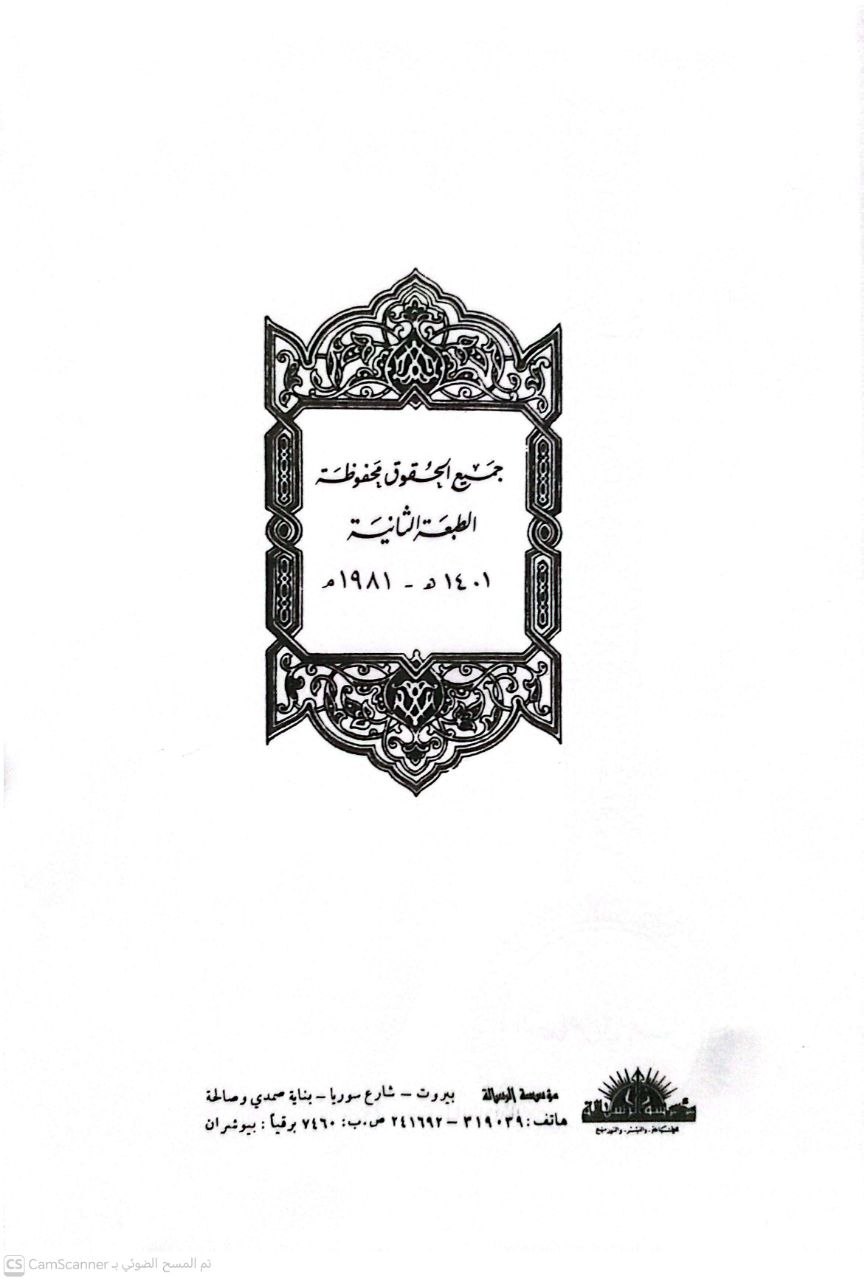 جميع الحقوق محفوظة
الطبعة الثانية
١٤٠١ هـ - ١٩٨١ م
مؤسسة الرسالة بيروت - شارع سوريا - بناية صمدي وصالحة
هاتف: ٣١٩٠٣٩ - ٢٤١٦٩٢ ص.ب: ٧٤٦٠ برقياً: بيوشران
مؤسسة الرسالة
للطباعة والنشر والتوزيع
CS CamScanner تم المسح الضوئي بـ